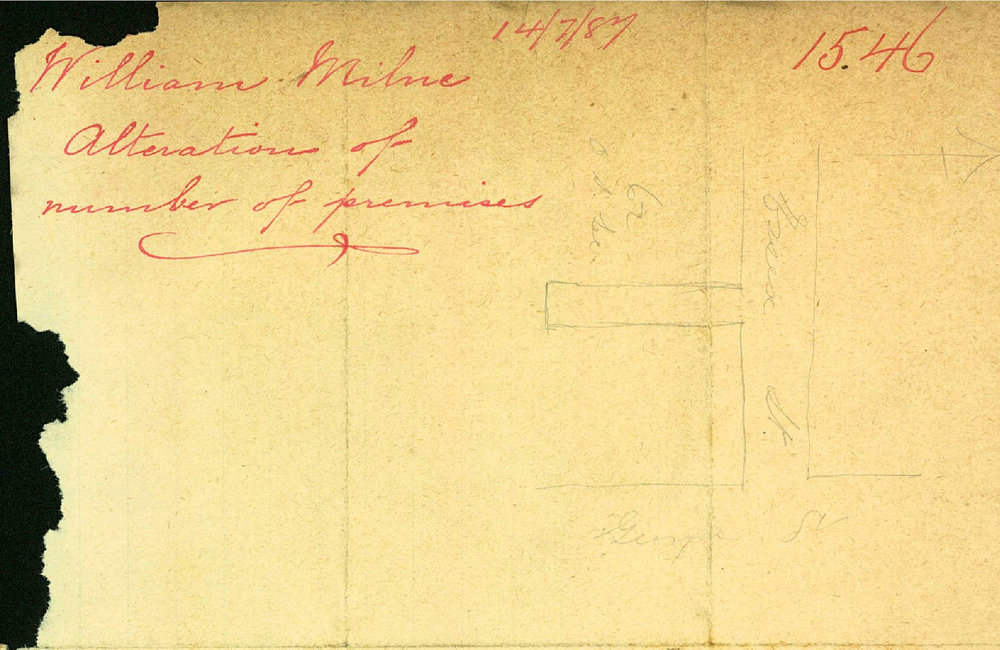 14/7/87
15.46
William Milne
Alteration of
number of premises
St
George St